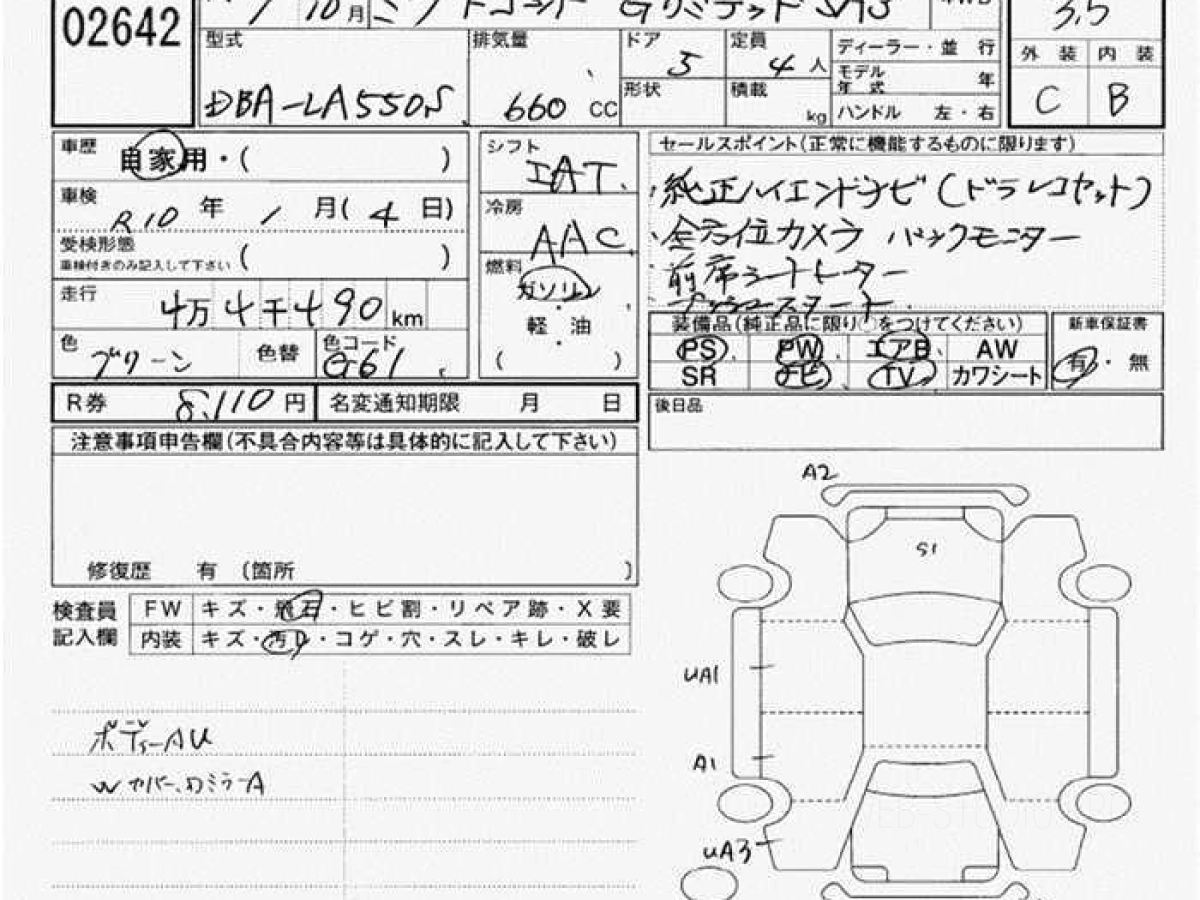 02642
10月 ミラトコット GリミテッドSAⅢ
3.5
型式 DBA-LA550S
排気量 660 CC
ドア 5
定員 4 人
形状
積載 kg
ディーラー・並 行
モデル年式 年
ハンドル 左・右
外 装 内 装
C B
車歴 自家用・( )
車検 R10 年 1 月(4 日)
受検形態
車検付きのみ記入して下さい ( )
走行 4万4千490 km
色 グリーン 色替 色コード G61
シフト IAT
冷房 AAC
燃料 ガソリン
・
軽 油
・
( )
セールスポイント(正常に機能するものに限ります)
・純正ハイエンドナビ(ドラレコセット)
・全方位カメラ バックモニター
前席シートヒーター
プッシュスタート
装備品(純正品に限り○をつけてください)
PS PW エアB AW
SR ナビ TV カワシート
新車保証書
有・無
R券 8,110 円 名変通知期限 月 日
後日品
注意事項申告欄(不具合内容等は具体的に記入して下さい)
修復歴 有 (箇所 )
検査員 FW キズ・飛石・ヒビ割・リペア跡・X要
記入欄 内装 キズ・汚レ・コゲ・穴・スレ・キレ・破レ
ボディーAU
Wカバー、ミラーA
A2
S1
UA1
A1
UA3